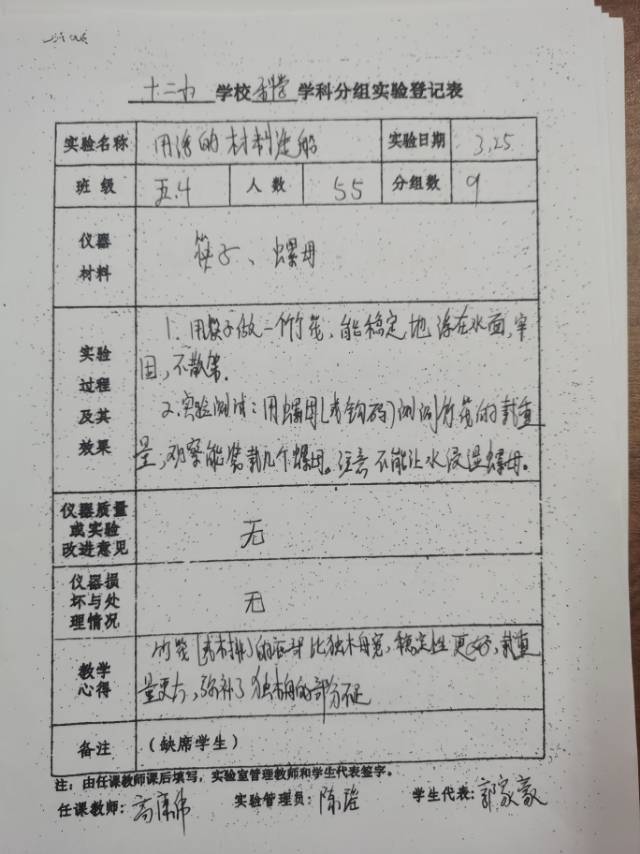 十二中 学校 科学 学科分组实验登记表
实验名称 用浮的材料造船 实验日期 3.25
班级 五.4 人数 55 分组数 9
仪器材料 筷子、螺母
实验过程及其效果
1.用筷子做一个竹筏,能稳定地浮在水面,牢
固,不散架.
2.实验测试:用螺母(或钩码)测测竹筏的载重
量,观察能装载几个螺母。注意不能让水浸湿螺母。
仪器质量或实验改进意见 无
仪器损坏与处理情况 无
教学心得
竹筏(或木排)的底部比独木舟宽,稳定性更好,载重
量更大,弥补了独木舟的部分不足
备注 (缺席学生)
注:由任课教师课后填写,实验室管理教师和学生代表签字。
任课教师: 实验管理员: 学生代表:郭家豪